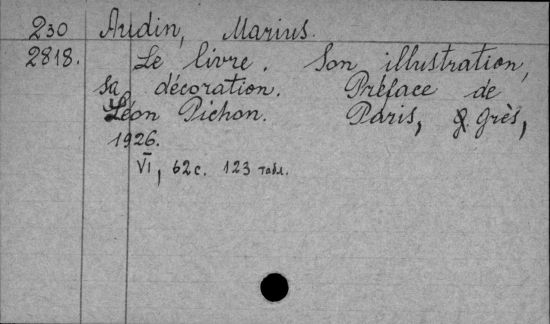 230 Audin, Marius.
2818. Le livre. Son illustration,
sa décoration. Préface de
Léon Pichon. Paris, G. Grès,
1926.
VI, 62 c. 123 табл.